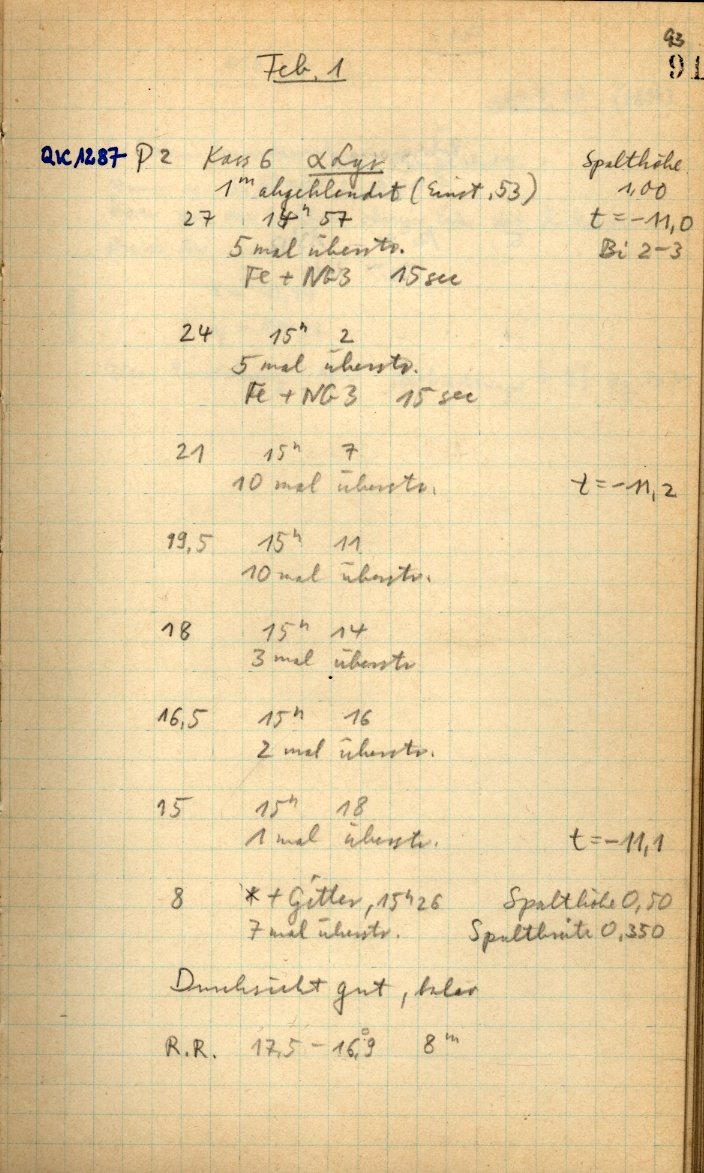 93
91
Feb. 1
QK1287 P2 Kass 6 α Lyr Spalthöhe
1ᵐ abgeblendet (Einst. 53) 1,00
27 14ʰ 57 t = -11,0
5 mal überstr. Bi 2-3
Fe + NG3 15 sec
24 15ʰ 2
5 mal überstr.
Fe + NG3 15 sec
21 15ʰ 7
10 mal überstr. t = -11,2
19,5 15ʰ 11
10 mal überstr.
18 15ʰ 14
3 mal überstr
16,5 15ʰ 16
2 mal überstr.
15 15ʰ 18
1 mal überstr. t = -11,1
8 * + Gitter, 15ʰ 26 Spalthöhe 0,50
7 mal überstr. Spaltbreite 0,350
Durchsicht gut,
R.R. 17,5 - 16,°9 8ᵐ